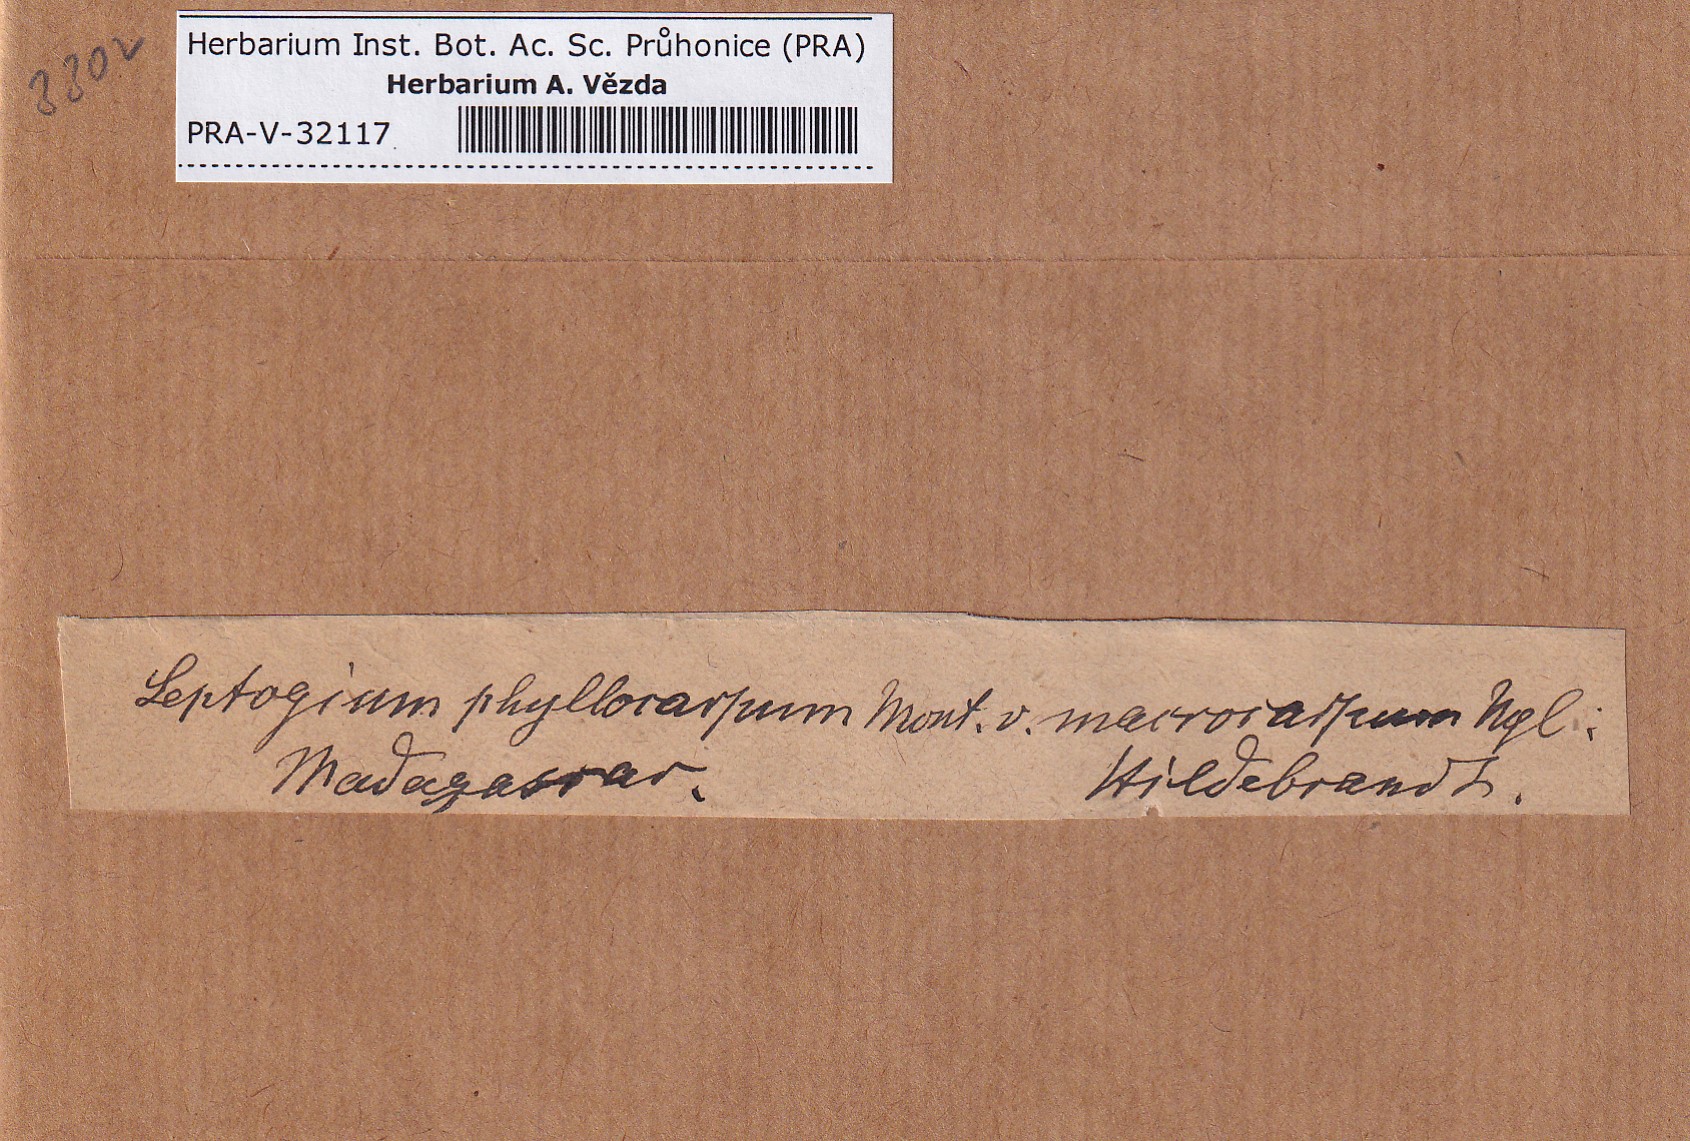 3302
Herbarium Inst. Bot. Ac. Sc. Průhonice (PRA)
Herbarium A. Vězda
PRA-V-32117
Leptogium phyllocarpum Mont. v. macrocarpum Nyl:
Madagascar. Hildebrandt.